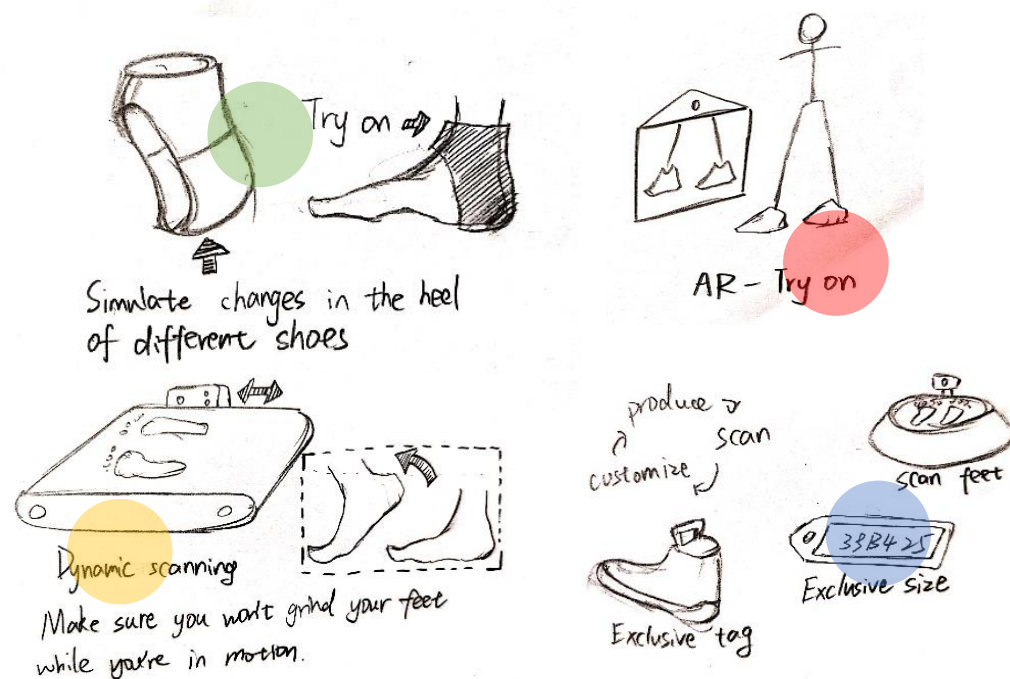 Try on
Simulate changes in the heel
of different shoes
AR - Try on
Dynamic scanning
Make sure you won't grind your feet
while you're in motion.
produce
scan
customize
scan feet
39B425
Exclusive size
Exclusive tag